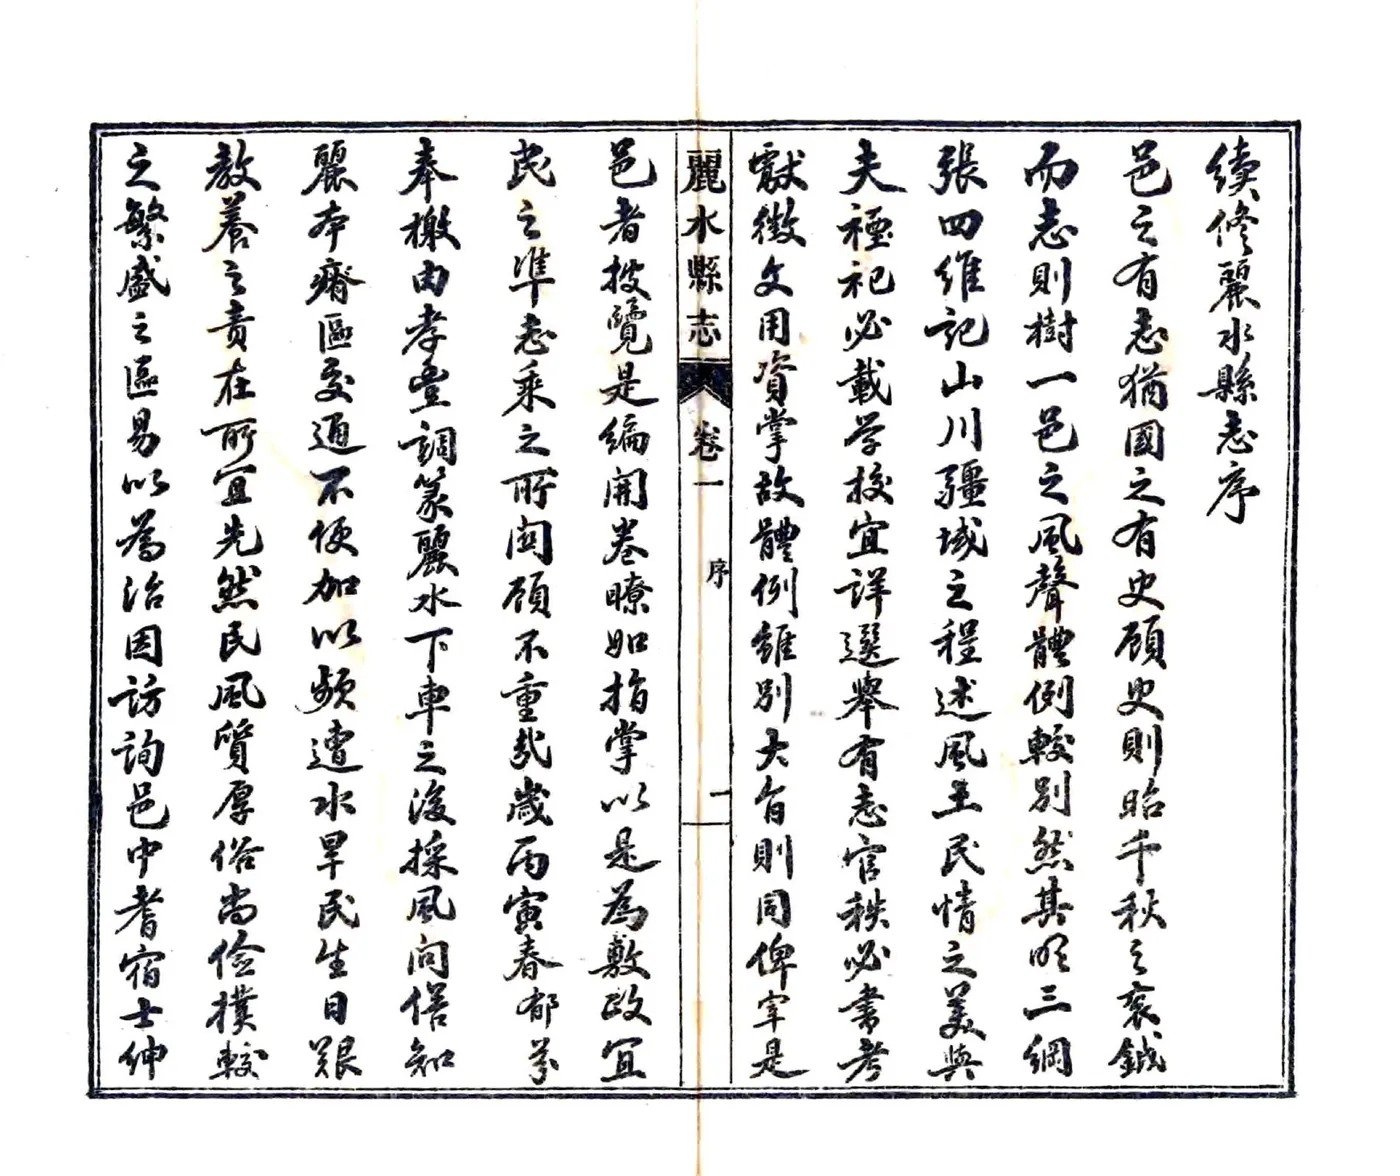 續修麗水縣志序
邑之有志猶國之有史顧史則昭千秋之袞鉞
而志則樹一邑之風聲體例較別然其明三綱
張四維記山川疆域之程述風土民情之美與
夫禋祀必載学校宜詳選舉有志官秩必書考
獻徵文用資掌故體例雖別大旨則同俾宰是
麗水縣志
卷一
序
一
邑者披覽是編開卷瞭如指掌以是為敷政宜
民之準志乘之所関顧不重哉歲丙寅春郁芬
奉檄由孝豊調篆麗水下車之後採風问俗知
麗本瘠區交通不便加以頻遭水旱民生日艱
教養之責在所宜先然民風質厚俗尚儉樸較
之繁盛之區易以為治因訪詢邑中耆宿士绅